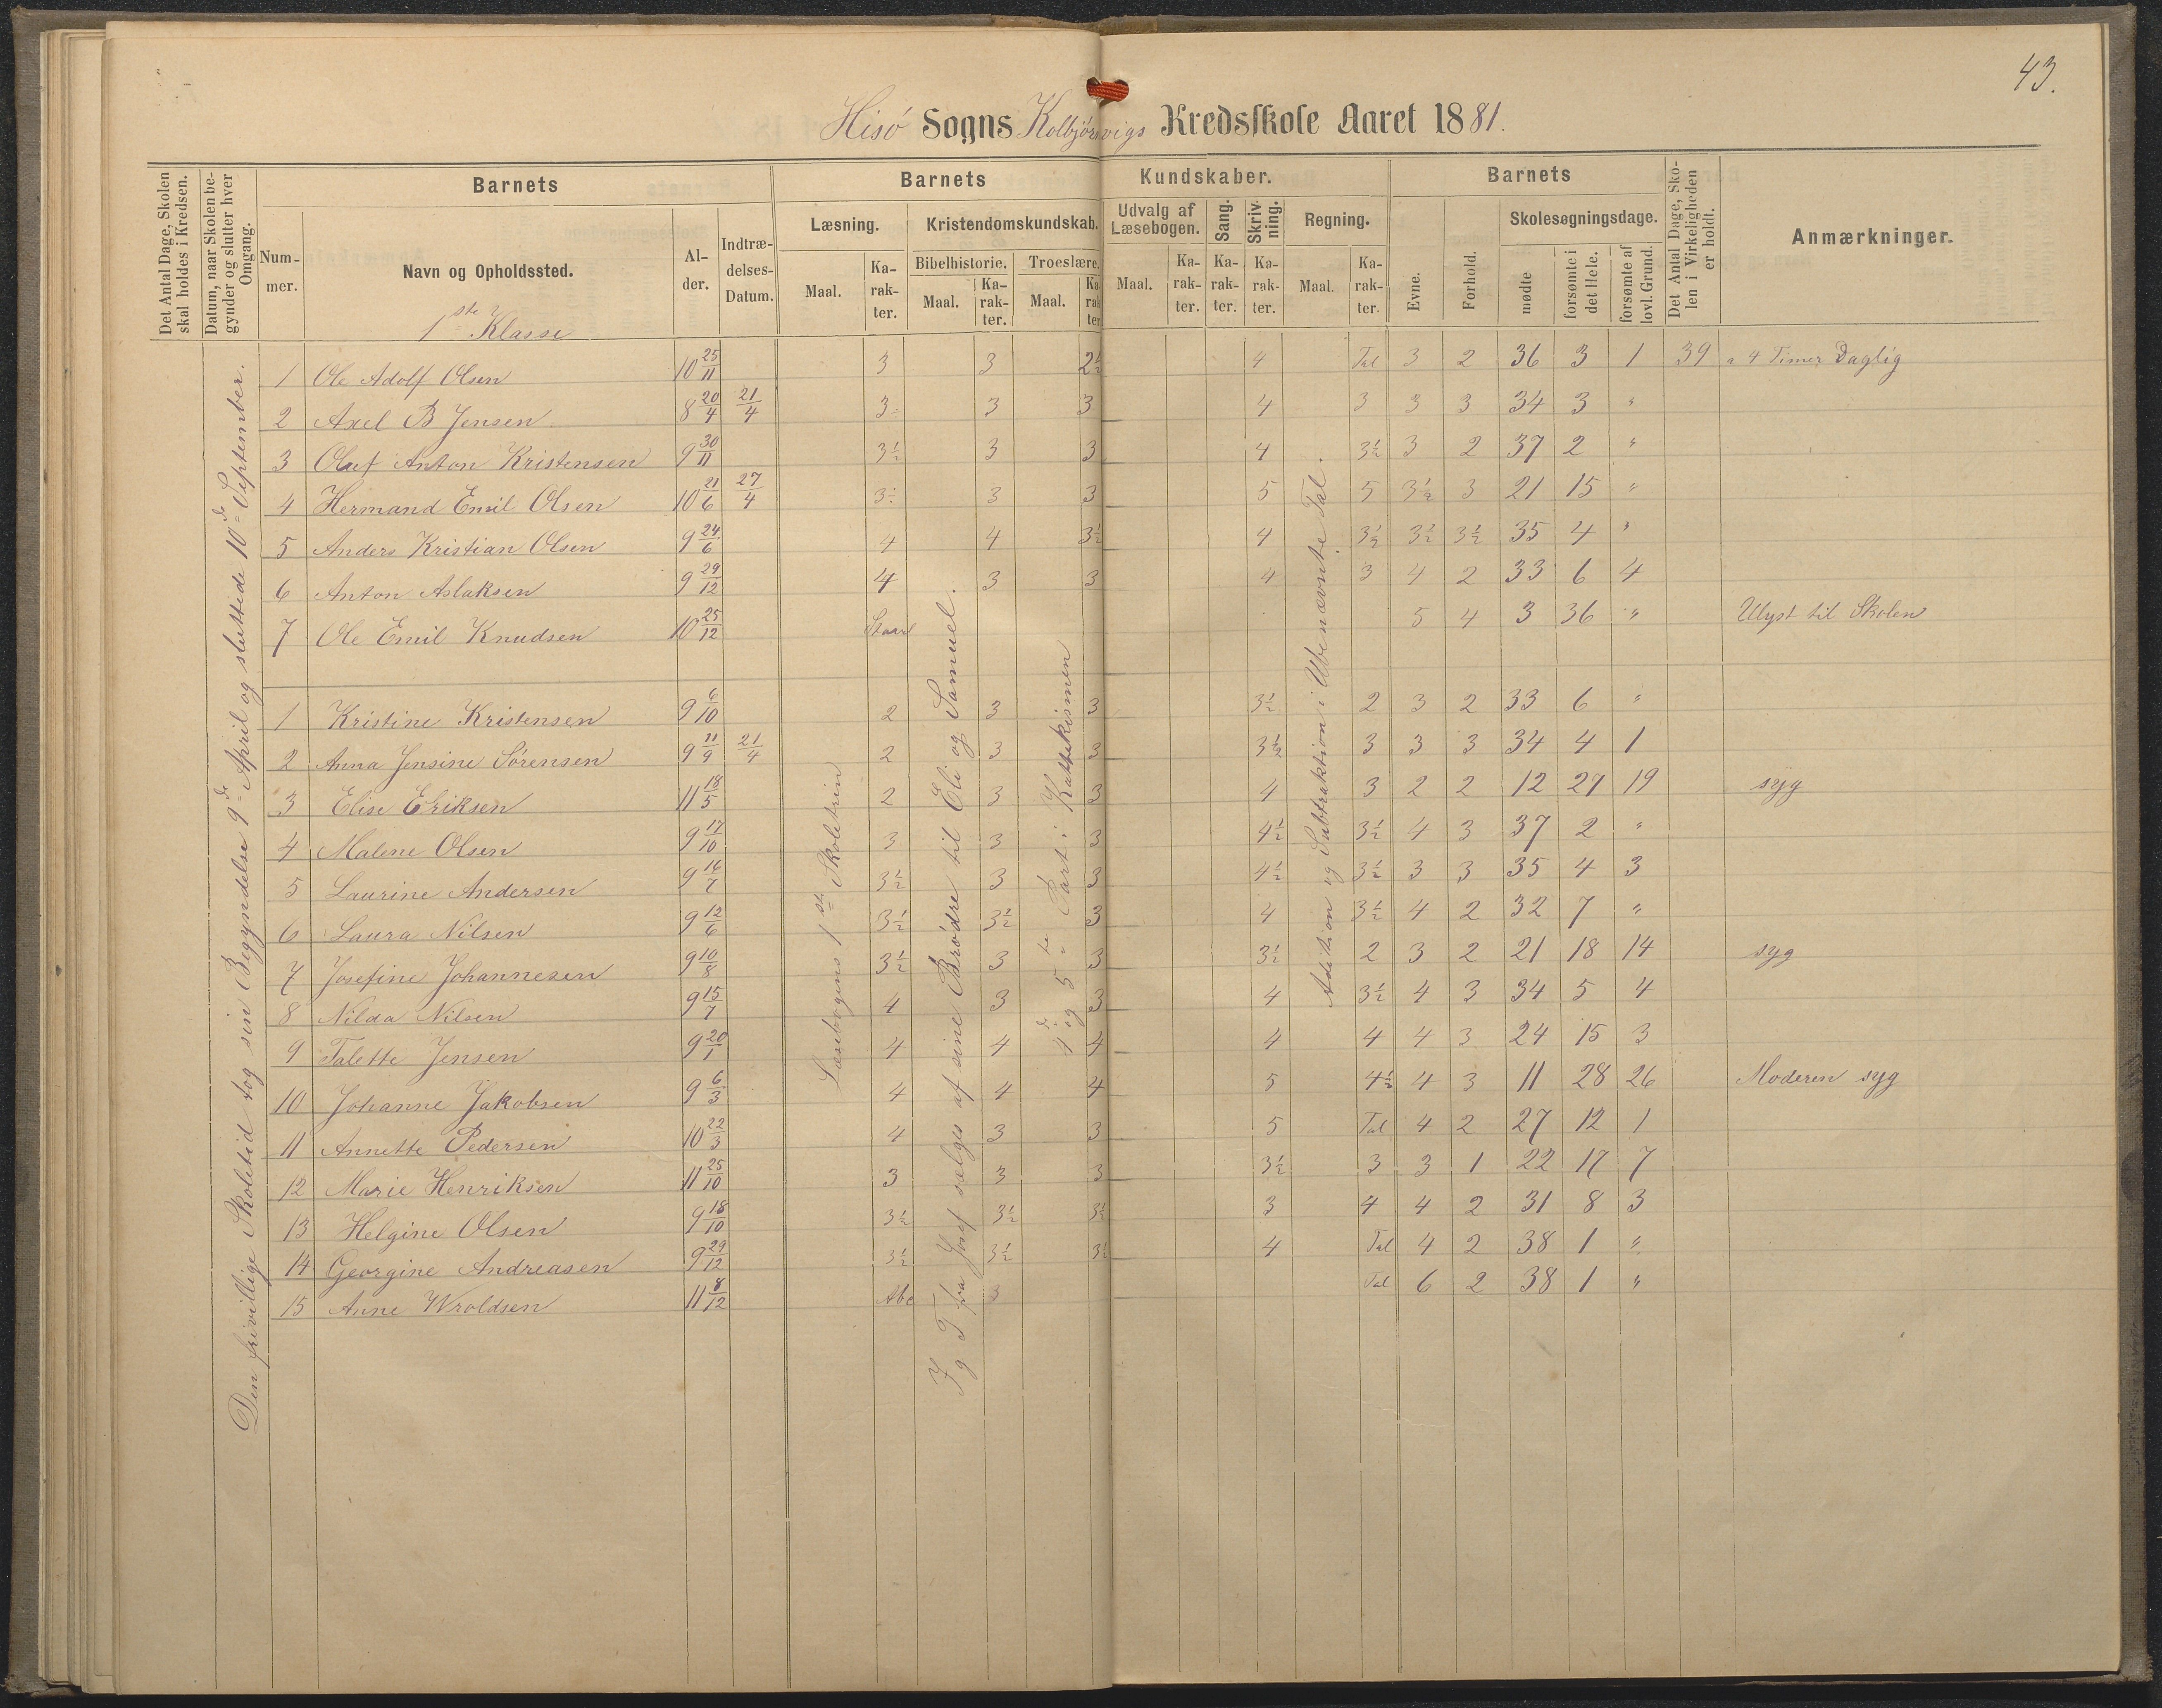 43.
Hisö Sogns Kolbjörsvigs Kredsskole Aaret 1881.
Det Antal Dage, Skolen skal holdes i Kredsen.
Datum, naar Skolen begynder og slutter hver Omgang.
Barnets
Barnets Kundskaber.
Barnets
Det Antal Dage, Skolen i Virkeligheden er holdt.
Anmærkninger.
Nummer.
Navn og Opholdssted.
Alder.
Indtrædelses-Datum.
Læsning.
Kristendomskundskab.
Udvalg af Læsebogen.
Sang.
Skrivning.
Regning.
Evne.
Forhold.
Skolesøgningsdage.
Bibelhistorie.
Troeslære.
Maal.
Karakter.
Maal.
Karakter.
Maal.
Karakter
Maal.
Karakter.
Karakter.
Karakter.
Maal.
Karakter.
mødte
forsømte i det Hele.
forsømte af lovl. Grund.
1ste Klasse
Den frivillige Skoletid tog sin Begyndelse 9de April og sluttede 10de September.
Læsebogens 1ste Skoletrin
F g T fra Josef sælges af sine Brødre til Eli og Samuel.
4de og 5te Part i Kattekismen
Addition og Subtraktion i Ubenævnte Tal.
1 Ole Adolf Olsen 10 25/11 3 3 2½ 4 Tal 3 2 36 3 1 39 a 4 Timer Daglig
2 Axel B Jensen 8 20/4 21/4 3÷ 3 3 4 3 3 3 34 3 "
3 Oluf Anton Kristensen 9 30/11 3½ 3 3 4 3½ 3 2 37 2 "
4 Hermand Emil Olsen 10 21/6 27/4 3÷ 3 3 5 5 3½ 3 21 15 "
5 Anders Kristian Olsen 9 24/6 4 4 3½ 4 3½ 3½ 3½ 35 4 "
6 Anton Aslaksen 9 29/12 4 3 3 4 3 4 2 33 6 4
7 Ole Emil Knudsen 10 25/12 5 4 3 36 " Ulyst til Skolen
1 Kristine Kristensen 9 6/10 2 3 3 3½ 2 3 2 33 6 "
2 Anna Jensine Sørensen 9 11/9 21/4 2 3 3 3½ 3 3 3 34 4 1
3 Elise Eriksen 11 18/5 2 3 3 4 3 2 2 12 27 19 syg
4 Malene Olsen 9 17/10 3 3 3 4½ 3½ 4 3 37 2 "
5 Laurine Andersen 9 16/7 3½ 3 3 4½ 3½ 3 3 35 4 3
6 Laura Nilsen 9 12/6 3½ 3½ 3 4 3½ 4 2 32 7 "
7 Josefine Johannesen 9 10/8 3½ 3 3 3½ 2 3 2 21 18 14 syg
8 Nilda Nilsen 9 15/7 4 3 3 4 3½ 4 3 34 5 4
9 Talette Jensen 9 20/1 4 4 4 4 4 4 3 24 15 3
10 Johanne Jakobsen 9 6/3 4 4 4 5 4½ 4 3 11 28 26 Moderen syg
11 Annette Pedersen 10 22/3 4 3 3 5 Tal 4 2 27 12 1
12 Marie Henriksen 11 25/10 3 3 3 3½ 3 3 1 22 17 7
13 Helgine Olsen 9 18/10 3½ 3½ 3½ 3 4 4 2 31 8 3
14 Georgine Andreasen 9 29/12 3½ 3½ 3½ 4 Tal 4 2 38 1 "
15 Anne Wroldsen 11 8/12 Abc 3 Tal 6 2 38 1 "